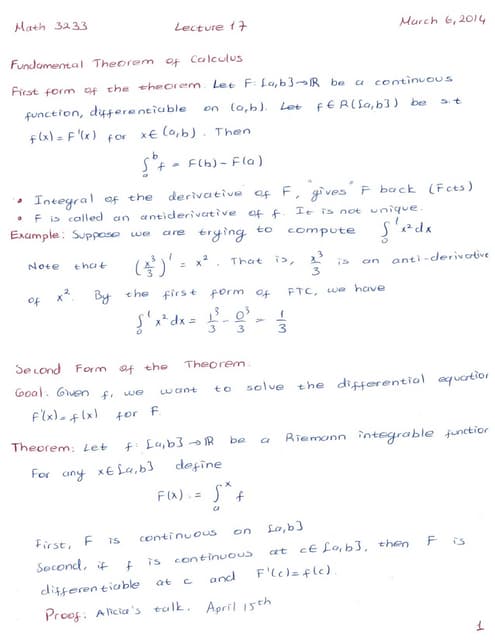 Math 3233 Lecture 17 March 6, 2014
Fundamental Theorem of Calculus
First form of the theorem. Let F: [a,b]→ℝ be a continuous
function, differentiable on (a,b). Let f∈R([a,b]) be s.t
f(x) = F'(x) for x∈(a,b). Then
∫_a^b f = F(b) - F(a)
• Integral of the derivative of F, "gives" F back (Fcts)
• F is called an antiderivative of f. It is not unique.
Example: Suppose we are trying to compute ∫_0^1 x² dx
Note that (x³/3)' = x². That is, x³/3 is an anti-derivative
of x². By the first form of FTC, we have
∫_0^1 x² dx = 1³/3 - 0³/3 = 1/3
Second Form of the Theorem.
Goal. Given f, we want to solve the differential equation
F'(x) = f(x) for F.
Theorem: Let f: [a,b]→ℝ be a Riemann integrable function
For any x∈[a,b] define
F(x) := ∫_a^x f
First, F is continuous on [a,b]
Second, if f is continuous at c∈[a,b], then F is
differentiable at c and F'(c) = f(c).
Proof: Alicia's talk. April 15th
1